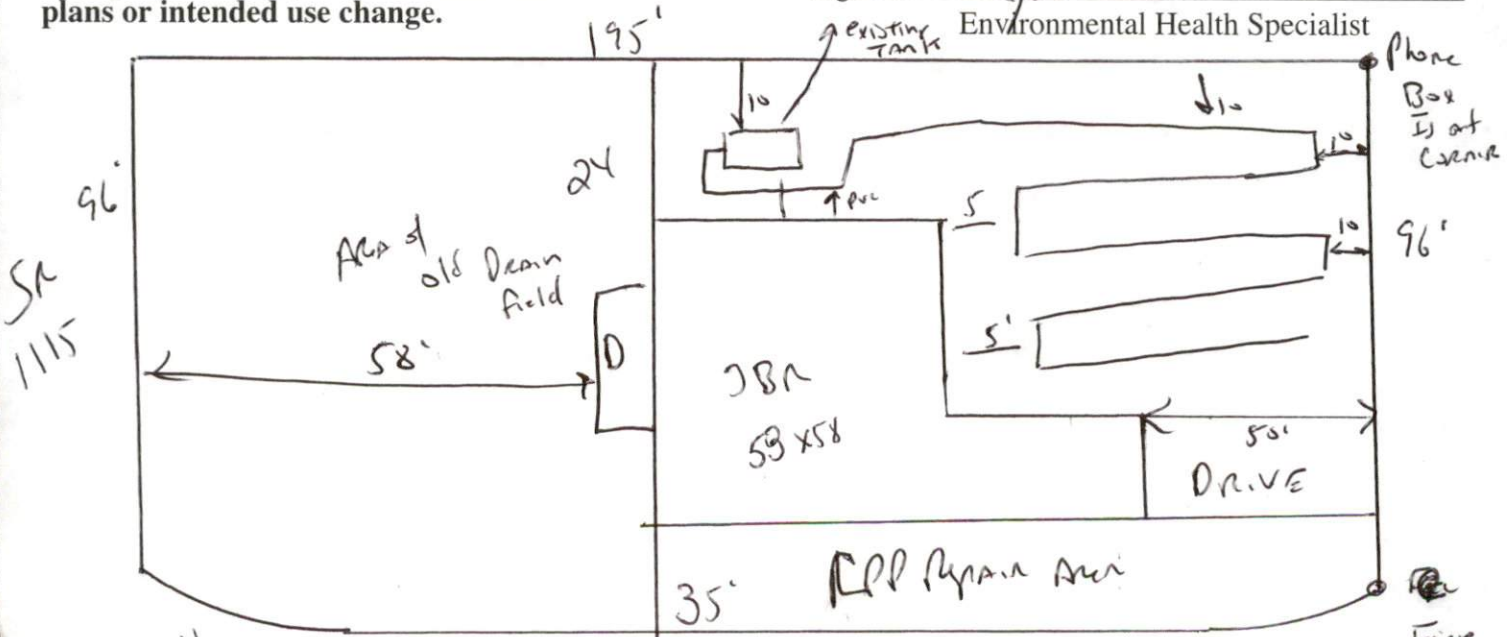 plans or intended use change.
Environmental Health Specialist
195'
existing
TANK
Phone
Box
Is at
Cornir
10
10
10
24
96'
PVC
5
10
96'
Area of
old Drain
field
SR
1115
5'
58'
D
3BR
59x58
50'
DRIVE
Repair Area
35'